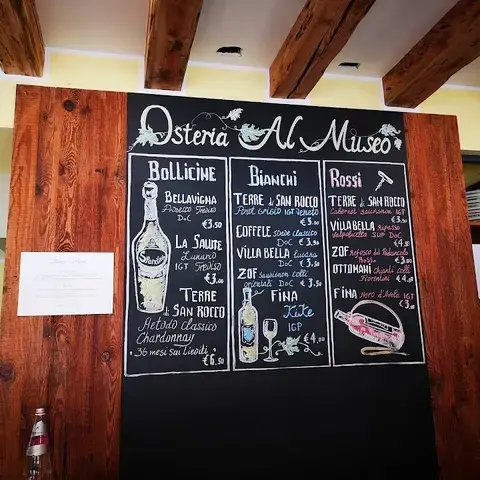 Osteria Al Museo
Bollicine
Bellavigna
Treviso
DoC
€3.50
La Salute
IGT Treviso
€3.00
Terre
di San Rocco
Metodo classico
Chardonnay
36 mesi sui lieviti
€6.50
Bianchi
Terre di San Rocco
Pinot Grigio IGT Veneto
€3.00
Coffele Soave classico
DoC €3.50
Villa Bella Lugana
DoC €3.50
Zof Sauvignon colli
orientali DoC €3.50
Fina
KiKe
IGP
€4,00
Rossi
Terre di San Rocco
Cabernet Sauvignon IGT
Villabella ripasso
Valpolicella SUP DoC
€4.50
Zof Refosco dal Peduncolo
Rosso €3.00
Ottomani Chianti colli
Fiorentini €4.00
Fina Nero d'Avola IGT